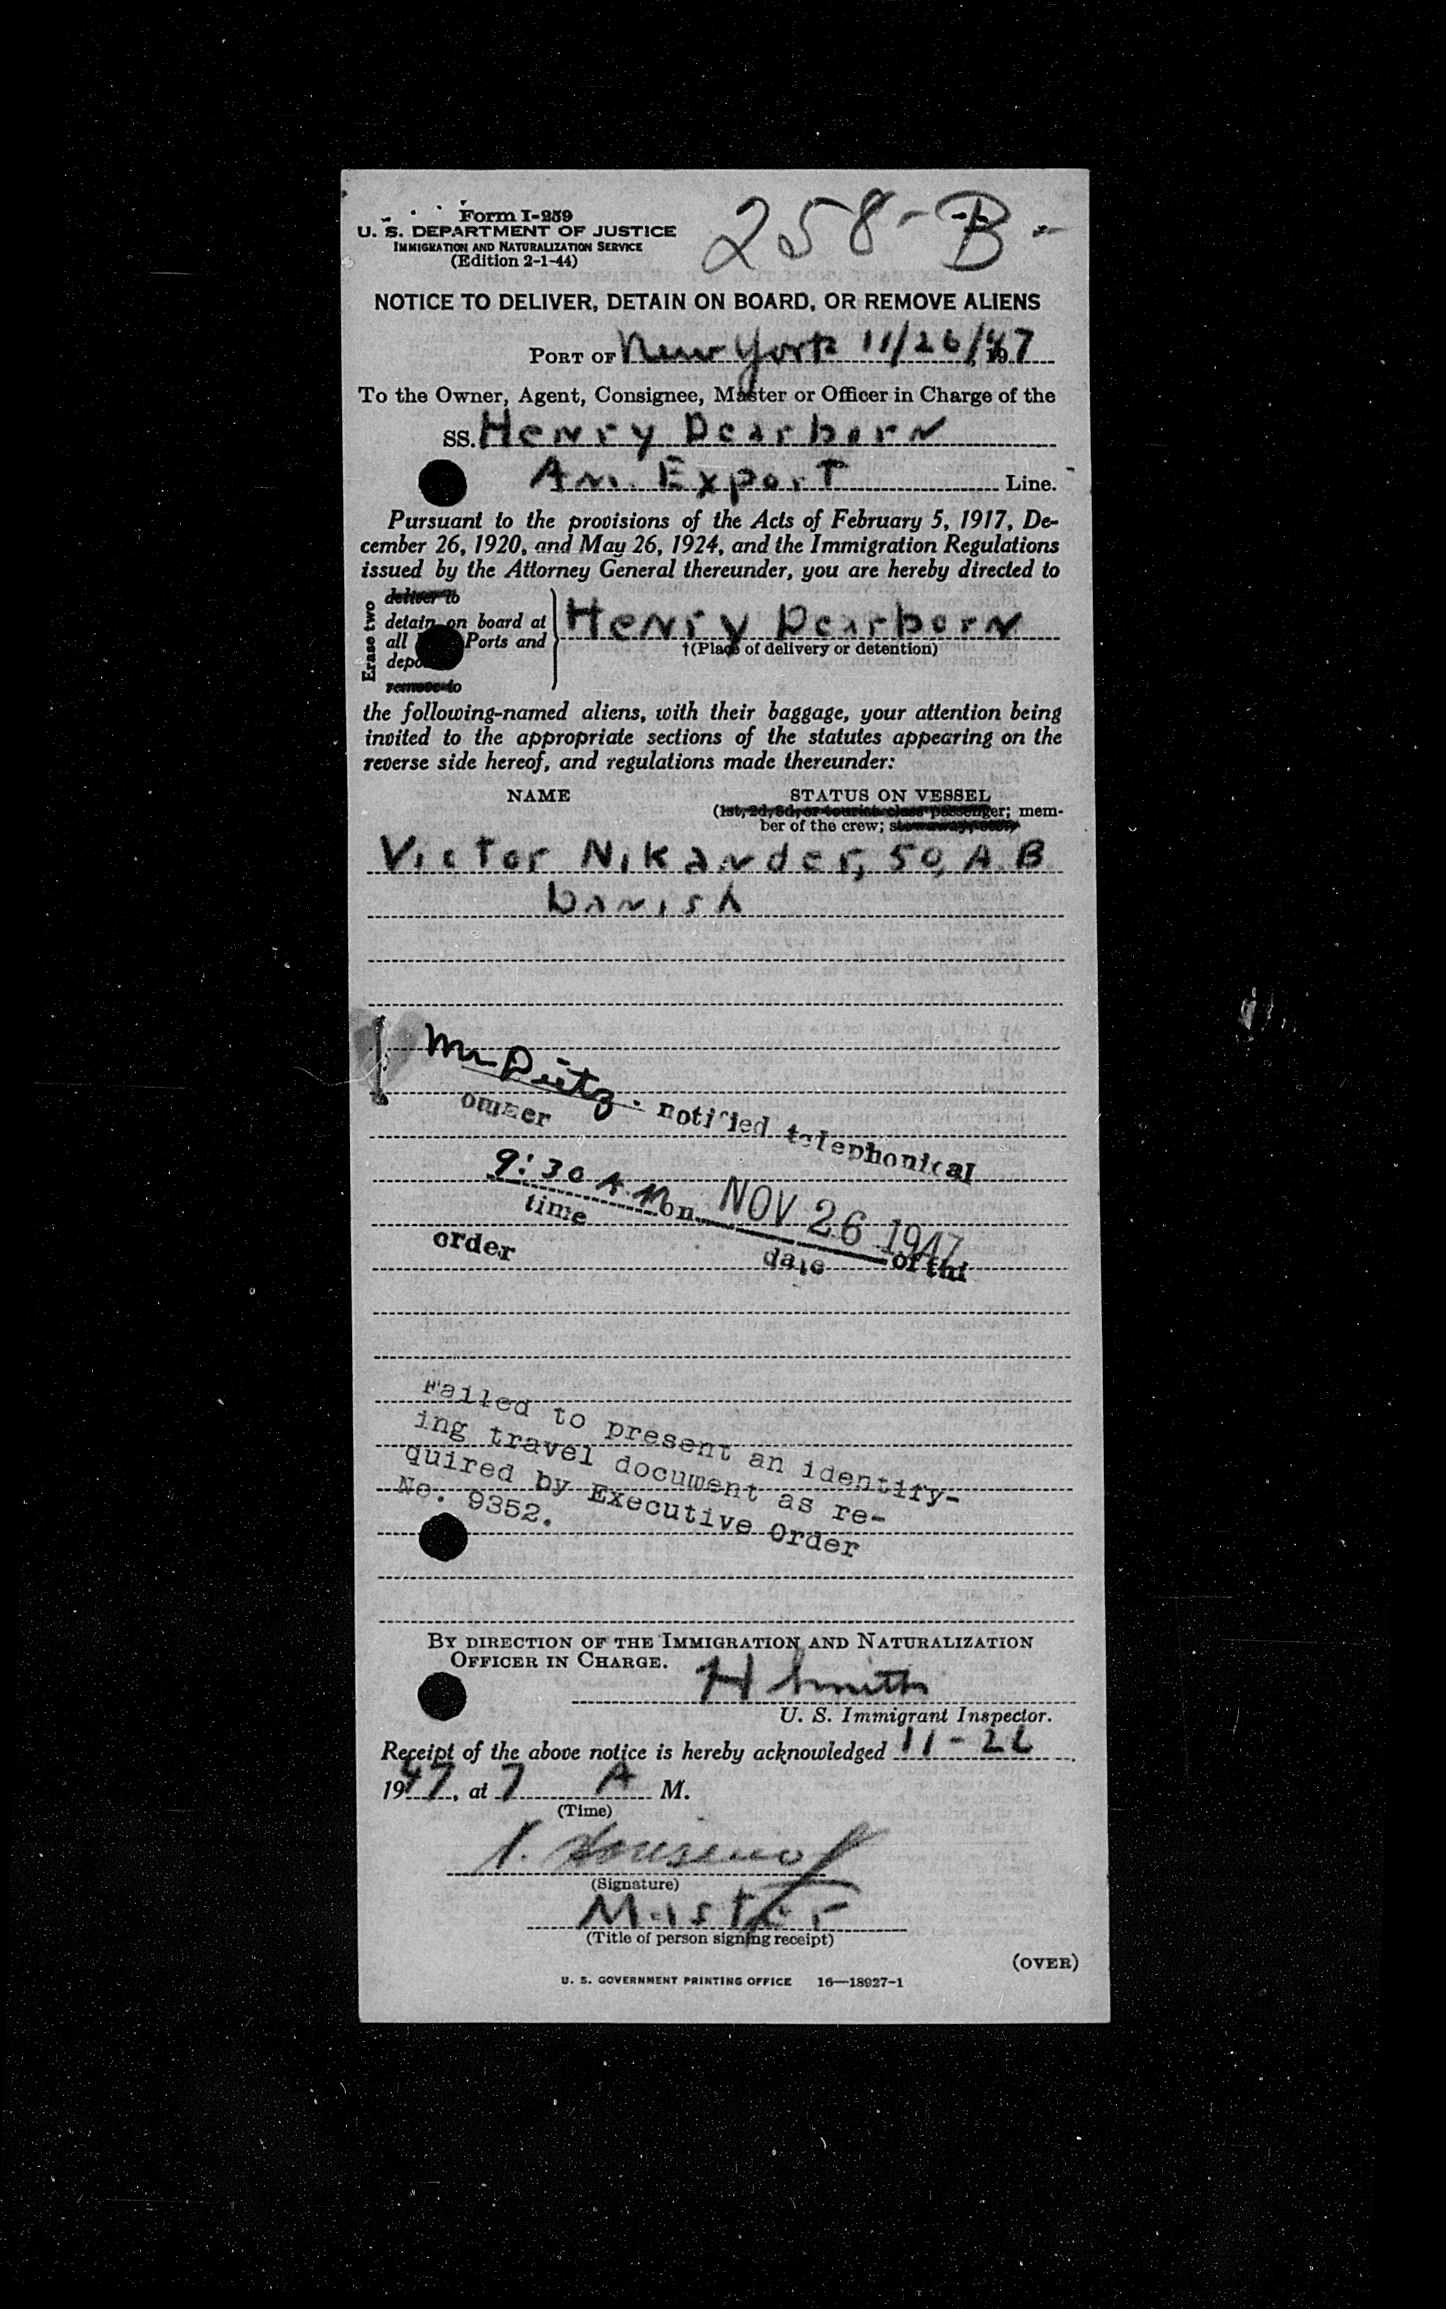 258-B-
Form I-259
U. S. DEPARTMENT OF JUSTICE
IMMIGRATION AND NATURALIZATION SERVICE
(Edition 2-1-44)
NOTICE TO DELIVER, DETAIN ON BOARD, OR REMOVE ALIENS
PORT OF New York 11/26/47
To the Owner, Agent, Consignee, Master or Officer in Charge of the
SS. Henry Dearborn
Am. Export Line.
Pursuant to the provisions of the Acts of February 5, 1917, De-
cember 26, 1920, and May 26, 1924, and the Immigration Regulations
issued by the Attorney General thereunder, you are hereby directed to
Erase two
deliver to
detain on board at
all Ports and
remove to
Henry Dearborn
†(Place of delivery or detention)
the following-named aliens, with their baggage, your attention being
invited to the appropriate sections of the statutes appearing on the
reverse side hereof, and regulations made thereunder:
NAME STATUS ON VESSEL
(1st, 2d, 3d, or tourist class passenger; mem-
ber of the crew;
Victor Nikander, 50, A.B
Danish
Mr Dietz. notified telephonical
owner
9:30 A.M on NOV 26 1947 of thi
time date
order
Failed to present an identify-
ing travel document as re-
quired by Executive Order
No. 9352.
BY DIRECTION OF THE IMMIGRATION AND NATURALIZATION
OFFICER IN CHARGE.
H Smith
U. S. Immigrant Inspector.
Receipt of the above notice is hereby acknowledged 11-26
1947, at 7 A M.
(Time)
(Signature)
Master
(Title of person signing receipt)
(OVER)
U. S. GOVERNMENT PRINTING OFFICE 16—18927-1